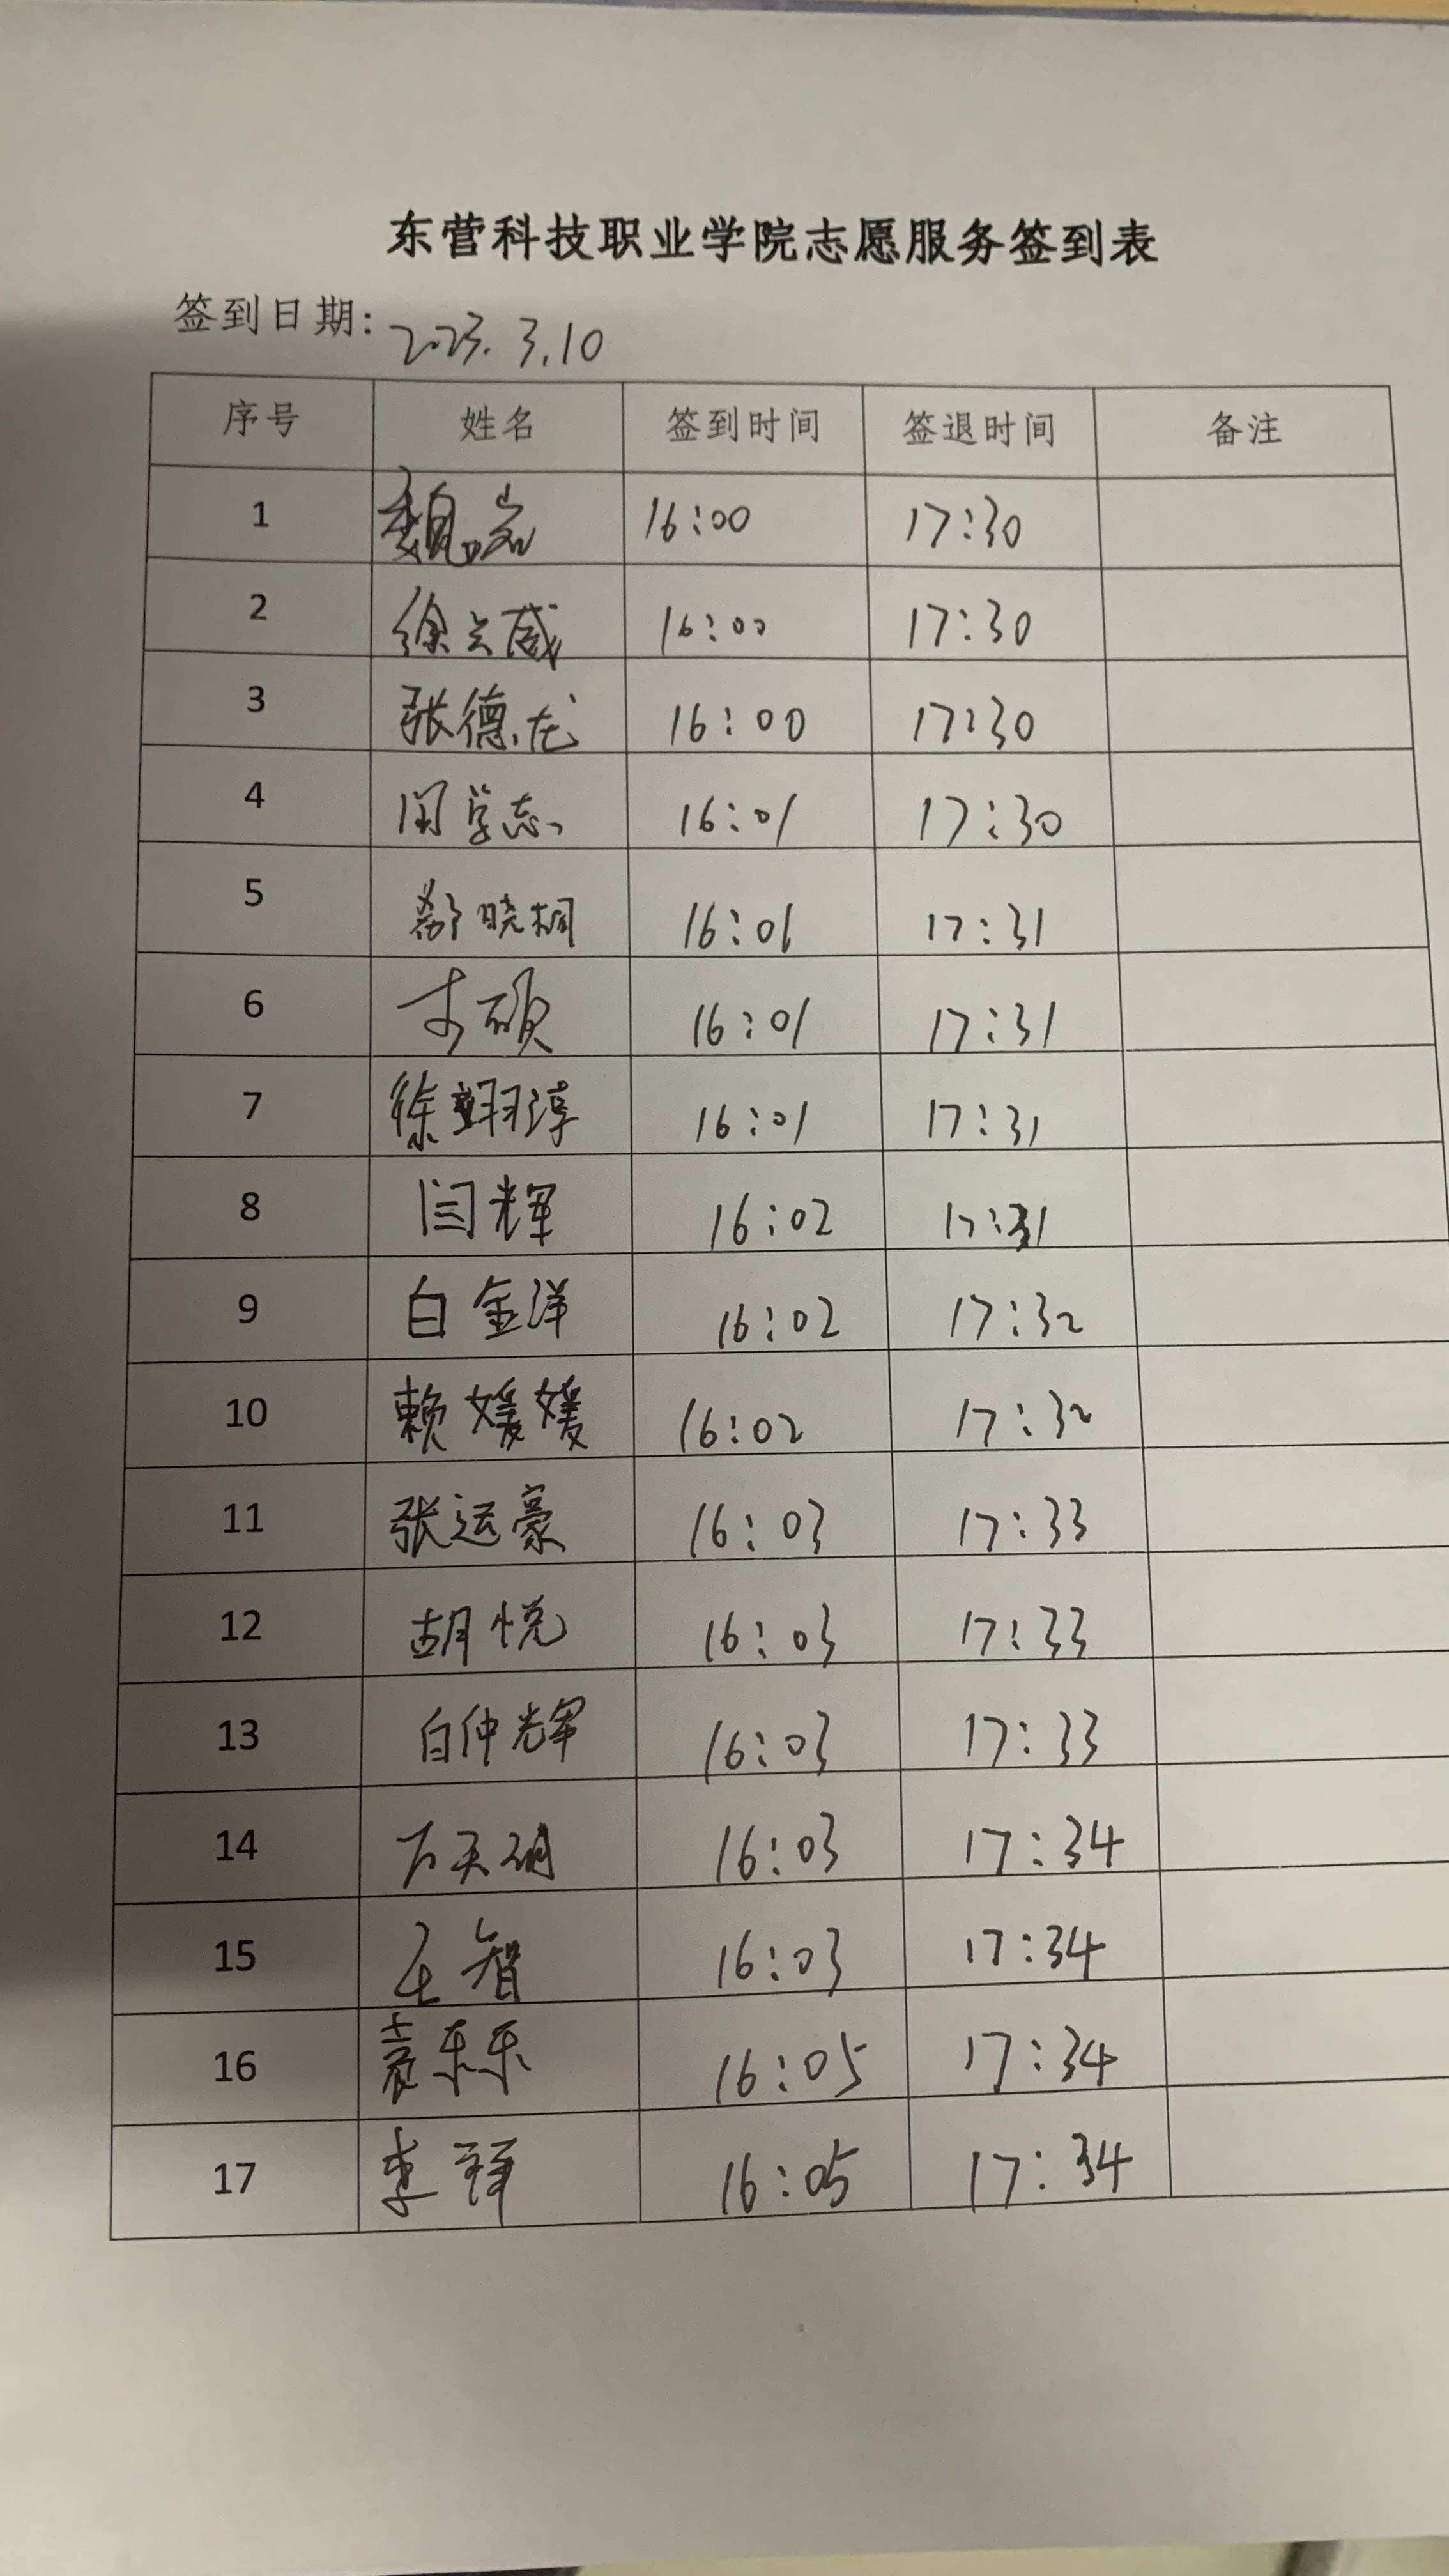 东营科技职业学院志愿服务签到表
签到日期: 2023.3.10
序号 姓名 签到时间 签退时间 备注
1 魏岩 16:00 17:30
2 徐云盛 16:00 17:30
3 张德龙 16:00 17:30
4 闫学志 16:01 17:30
5 郗晓桐 16:01 17:31
6 李硕 16:01 17:31
7 徐翊淳 16:01 17:31
8 闫辉 16:02 17:31
9 白金洋 16:02 17:32
10 赖媛媛 16:02 17:32
11 张运豪 16:03 17:33
12 胡悦 16:03 17:33
13 白仲辉 16:03 17:33
14 16:03 17:34
15 智 16:03 17:34
16 袁乐乐 16:05 17:34
17 李 16:05 17:34